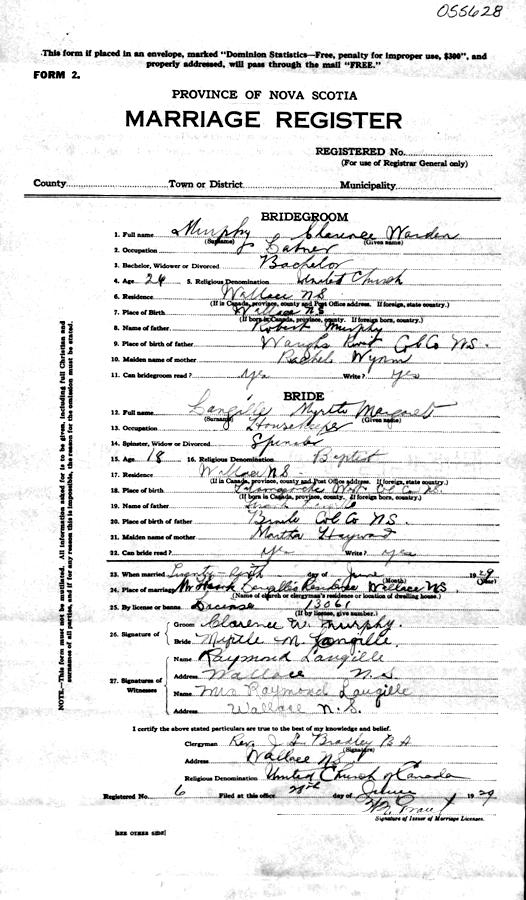 055628
This form if placed in an envelope, marked "Dominion Statistics—Free, penalty for improper use, $300", and
properly addressed, will pass through the mail "FREE."
FORM 2.
PROVINCE OF NOVA SCOTIA
MARRIAGE REGISTER
REGISTERED No.
(For use of Registrar General only)
County Town or District Municipality
BRIDEGROOM
1. Full name Murphy Clarence Warden
(Surname) (Given names)
2. Occupation Laborer
3. Bachelor, Widower or Divorced Bachelor
4. Age 26 5. Religious Denomination United Church
6. Residence Wallace N.S.
(If in Canada, province, county and Post Office address. If foreign, state country.)
7. Place of Birth Wallace N.S.
(If born in Canada, province, county. If foreign born, state country.)
8. Name of father Robert Murphy
9. Place of birth of father Waughs River Col Co N.S.
10. Maiden name of mother Rachel Wynn
11. Can bridegroom read? Yes Write? Yes
BRIDE
12. Full name Langille Myrtle Margaret
(Surname) (Given names)
13. Occupation Housekeeper
14. Spinster, Widow or Divorced Spinster
15. Age 18 16. Religious Denomination Baptist
17. Residence Wallace N.S.
(If in Canada, province, county and Post Office address. If foreign, state country.)
18. Place of birth Col Co N.S.
(If born in Canada, province, county. If foreign born, state country.)
19. Name of father
20. Place of birth of father Col Co N.S.
21. Maiden name of mother Martha Hayward
22. Can bride read? Yes Write? Yes
23. When married Twenty- day of June 1929
(Month) (Year)
24. Place of marriage Mr Langille's Residence Wallace N.S.
(Name of church or clergyman's residence or location of dwelling house.)
25. By license or banns License 13061
(If by license, give number.)
26. Signature of
Groom Clarence W. Murphy.
Bride Myrtle M. Langille.
27. Signatures of Witnesses
Name Raymond Langille
Address Wallace N.S.
Name Mrs Raymond Langille
Address Wallace N.S.
I certify the above stated particulars are true to the best of my knowledge and belief.
Clergyman Rev. J. Bradley B A
(Signature)
Address Wallace N.S.
Religious Denomination United Church of Canada
Registered No. 6 Filed at this office 28th day of June 1929
Signature of Issuer of Marriage Licenses.
[SEE OTHER SIDE]
NOTE.—This form must not be mutilated. All information asked for is to be given, including full Christian and
surname of all parties, and if for any reason this is impossible, the reason for the omission must be stated.